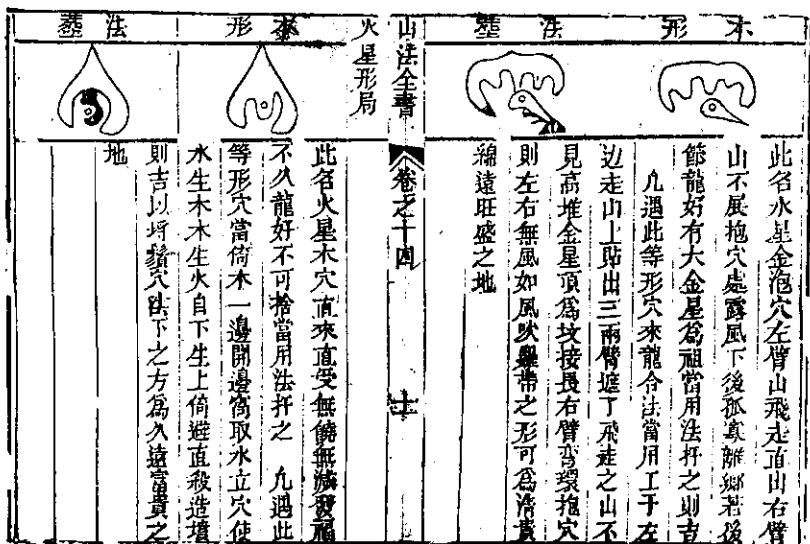 木形
塟法
此名水星金泡穴左臂山飛走直出右臂
山不展抱穴處露風下後孤寡離鄉若後
節龍好有大金星為祖當用法扦之則吉
凡遇此等形穴來龍合法當用工于左
边走山上貼出三兩臂遮了飛走之山不
見高堆金星頂為坟接長右臂弯環抱穴
則左右無風如風吹羅帶之形可為清貴
綿遠旺盛之地
山法全書
卷之十四
十
火星形局
本形
塟法
此名火星木穴直來直受無饒無減發福
不久龍好不可捨當用法扦之 凡遇此
等形穴當倚木一邊開邊窩取水立穴使
水生木木生火自下生上倚避直殺造墳
則吉以壻鬚穴法下之方為久遠富貴之
地